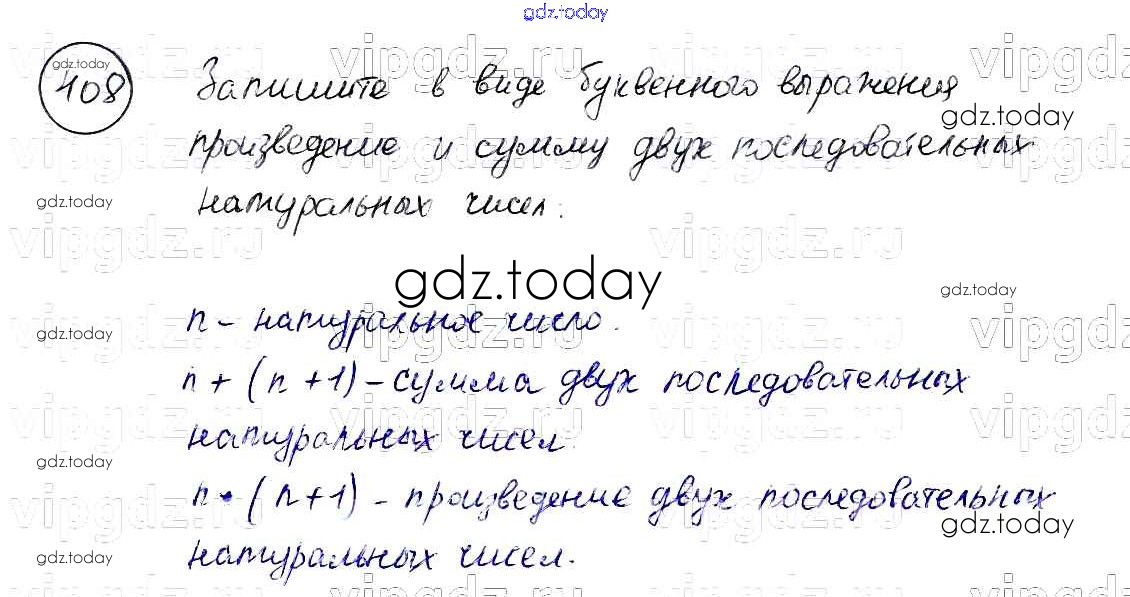 gdz.today
gdz.today
408
Запишите в виде буквенного выражения
gdz.today
произведение и сумму двух последовательных
gdz.today
натуральных чисел.
vipgdz.ru
gdz.today
gdz.today
n - натуральное число.
gdz.today
n + (n + 1) - сумма двух последовательных
натуральных чисел.
gdz.today
n · (n + 1) - произведение двух последовательных
gdz.today
натуральных чисел.
gdz.today
vipgdz.ru